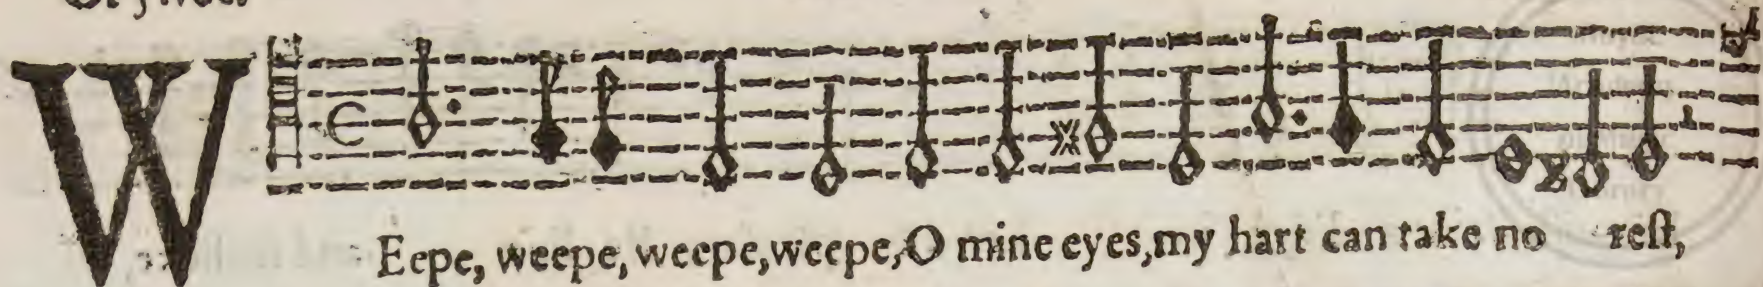 W
Eepe, weepe, weepe, weepe, O mine eyes, my hart can take no reſt,